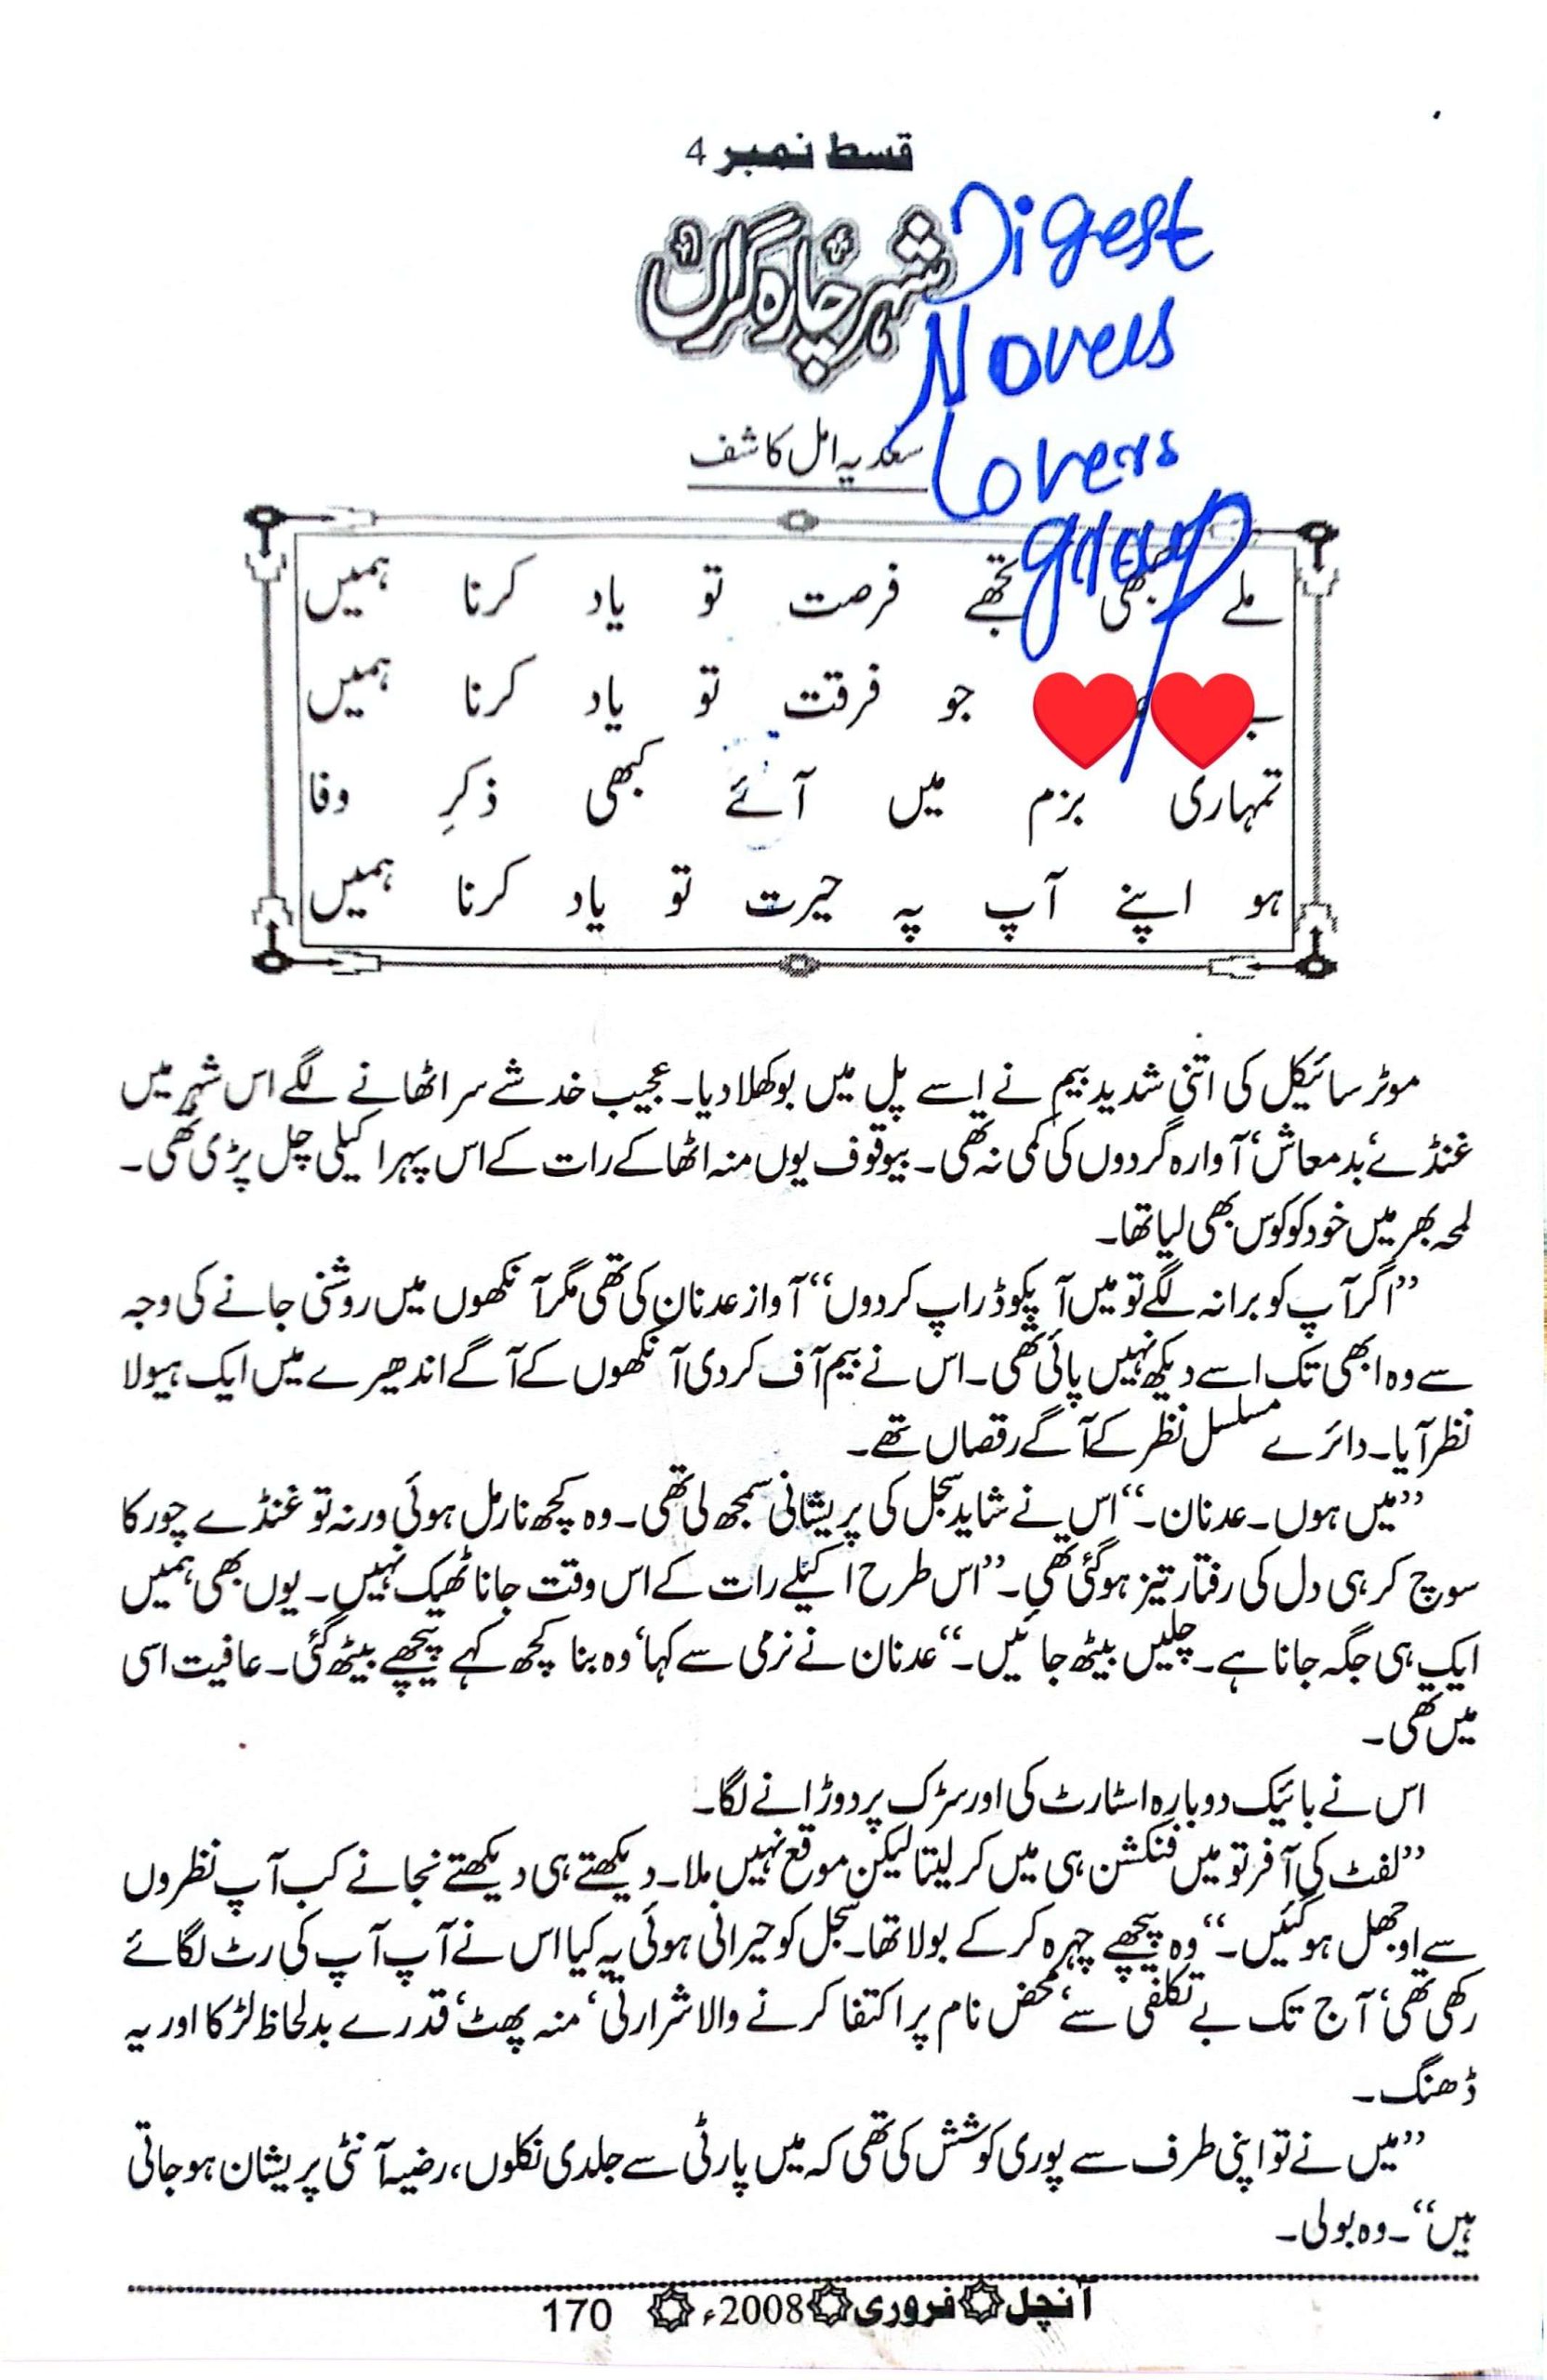 قسط نمبر 4
شہر چارہ گراں
Digest
Novels
Lovers
group
سعدیہ امل کاشف
ملے کبھی تجھے فرصت تو یاد کرنا ہمیں
جو فرقت تو یاد کرنا ہمیں
تمہاری بزم میں آئے کبھی ذکرِ وفا
ہو اپنے آپ پہ حیرت تو یاد کرنا ہمیں
موٹر سائیکل کی اتنی شدید بیم نے اسے پل میں بوکھلا دیا۔ عجیب خدشے سر اٹھانے لگے اس شہر میں
غنڈے، بدمعاش، آوارہ گردوں کی کمی نہ تھی۔ بیوقوف یوں منہ اٹھا کے رات کے اس پہر اکیلی چل پڑی تھی۔
لمحہ بھر میں خود کو کوس بھی لیا تھا۔
’’اگر آپ کو برا نہ لگے تو میں آپکو ڈراپ کردوں‘‘ آواز عدنان کی تھی مگر آنکھوں میں روشنی جانے کی وجہ
سے وہ ابھی تک اسے دیکھ نہیں پائی تھی۔ اس نے بیم آف کردی آنکھوں کے آگے اندھیرے میں ایک ہیولا
نظر آیا۔ دائرے مسلسل نظر کے آگے رقصاں تھے۔
’’میں ہوں۔ عدنان۔‘‘ اس نے شاید سجل کی پریشانی سمجھ لی تھی۔ وہ کچھ نارمل ہوئی ورنہ تو غنڈے چور کا
سوچ کر ہی دل کی رفتار تیز ہوگئی تھی۔ ’’اس طرح اکیلے رات کے اس وقت جانا ٹھیک نہیں۔ یوں بھی ہمیں
ایک ہی جگہ جانا ہے۔ چلیں بیٹھ جائیں۔‘‘ عدنان نے نرمی سے کہا، وہ بنا کچھ کہے پیچھے بیٹھ گئی۔ عافیت اسی
میں تھی۔
اس نے بائیک دوبارہ اسٹارٹ کی اور سڑک پر دوڑانے لگا۔
’’لفٹ کی آفر تو میں فنکشن ہی میں کر لیتا لیکن موقع نہیں ملا۔ دیکھتے ہی دیکھتے نجانے کب آپ نظروں
سے اوجھل ہوگئیں۔‘‘ وہ پیچھے چہرہ کرکے بولا تھا۔ سجل کو حیرانی ہوئی یہ کیا اس نے آپ آپ کی رٹ لگائے
رکھی تھی، آج تک بے تکلفی سے، محض نام پر اکتفا کرنے والا شرارتی، منہ پھٹ، قدرے بدلحاظ لڑکا اور یہ
ڈھنگ۔
’’میں نے تو اپنی طرف سے پوری کوشش کی تھی کہ میں پارٹی سے جلدی نکلوں، رضیہ آنٹی پریشان ہوجاتی
ہیں‘‘۔ وہ بولی۔
آنچل فروری 2008ء 170